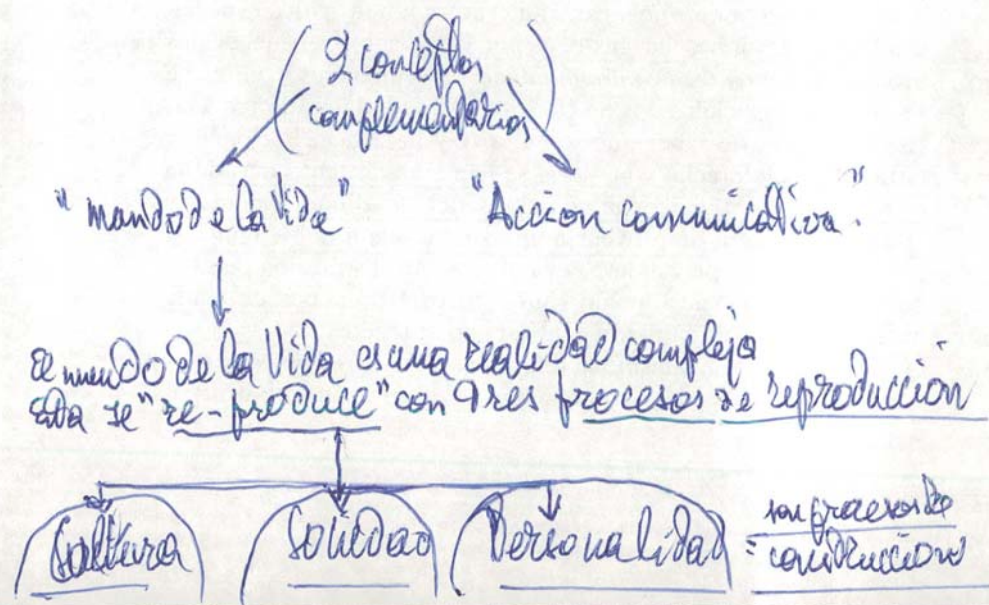 2 conceptos
complementarios
"mundo de la Vida" "Accion comunicativa."
el mundo de la Vida es una realidad compleja
Esta se "re-produce" con tres procesos de reproduccion
Cultura Sociedad Personalidad = son procesos de
construccion